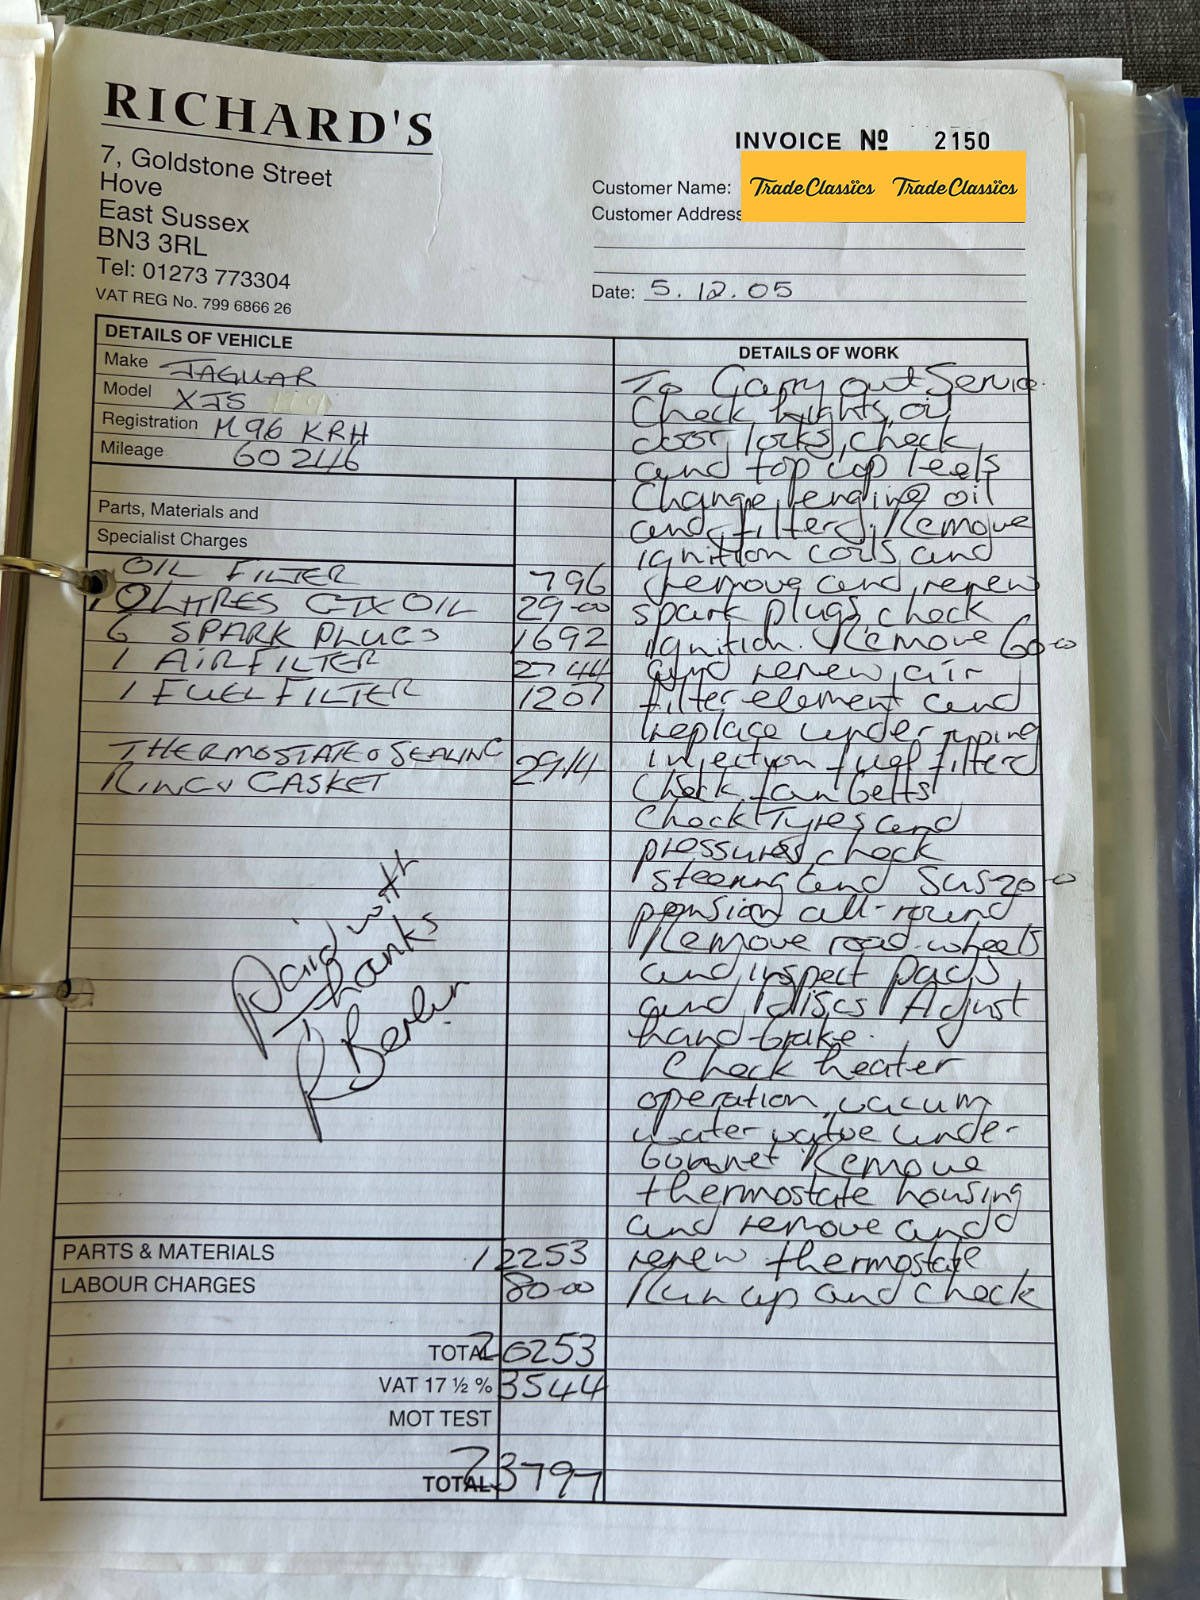 RICHARD'S
7, Goldstone Street
Hove
East Sussex
BN3 3RL
Tel: 01273 773304
VAT REG No. 799 6866 26
INVOICE Nº 2150
Customer Name: TradeClassics TradeClassics
Customer Address
Date: 5.12.05
DETAILS OF VEHICLE
Make JAGUAR
Model XJS
Registration M96 KRH
Mileage 60246
Parts, Materials and
Specialist Charges
OIL FILTER 796
10 LITRES GTX OIL 29-00
6 SPARK PLUGS 1692
1 AIR FILTER 2744
1 FUEL FILTER 1207
THERMOSTATE & SEALING 2914
RING & GASKET
Paid with
thanks
R Berlin
PARTS & MATERIALS 12253
LABOUR CHARGES 80-00
TOTAL 20253
VAT 17 ½ % 3544
MOT TEST
TOTAL 23797
DETAILS OF WORK
To Carry out Service.
Check lights, oil
door locks, check
and top up leels
Change engine oil
and filter. Remove
ignition coils and
remove and renew
spark plugs, check
ignition. Remove 60-00
and renew air
filter element and
replace under
injection fuel filter
Check fan belts
Check Tyres and
pressures, check
steering and Sus 20-0
pension all-round
Remove road-wheels
and inspect pads
and discs Adjust
hand-brake.
Check heater
operation, vacum
water valve under
bonnet Remove
thermostate housing
and remove and
renew thermostate
Run up and check